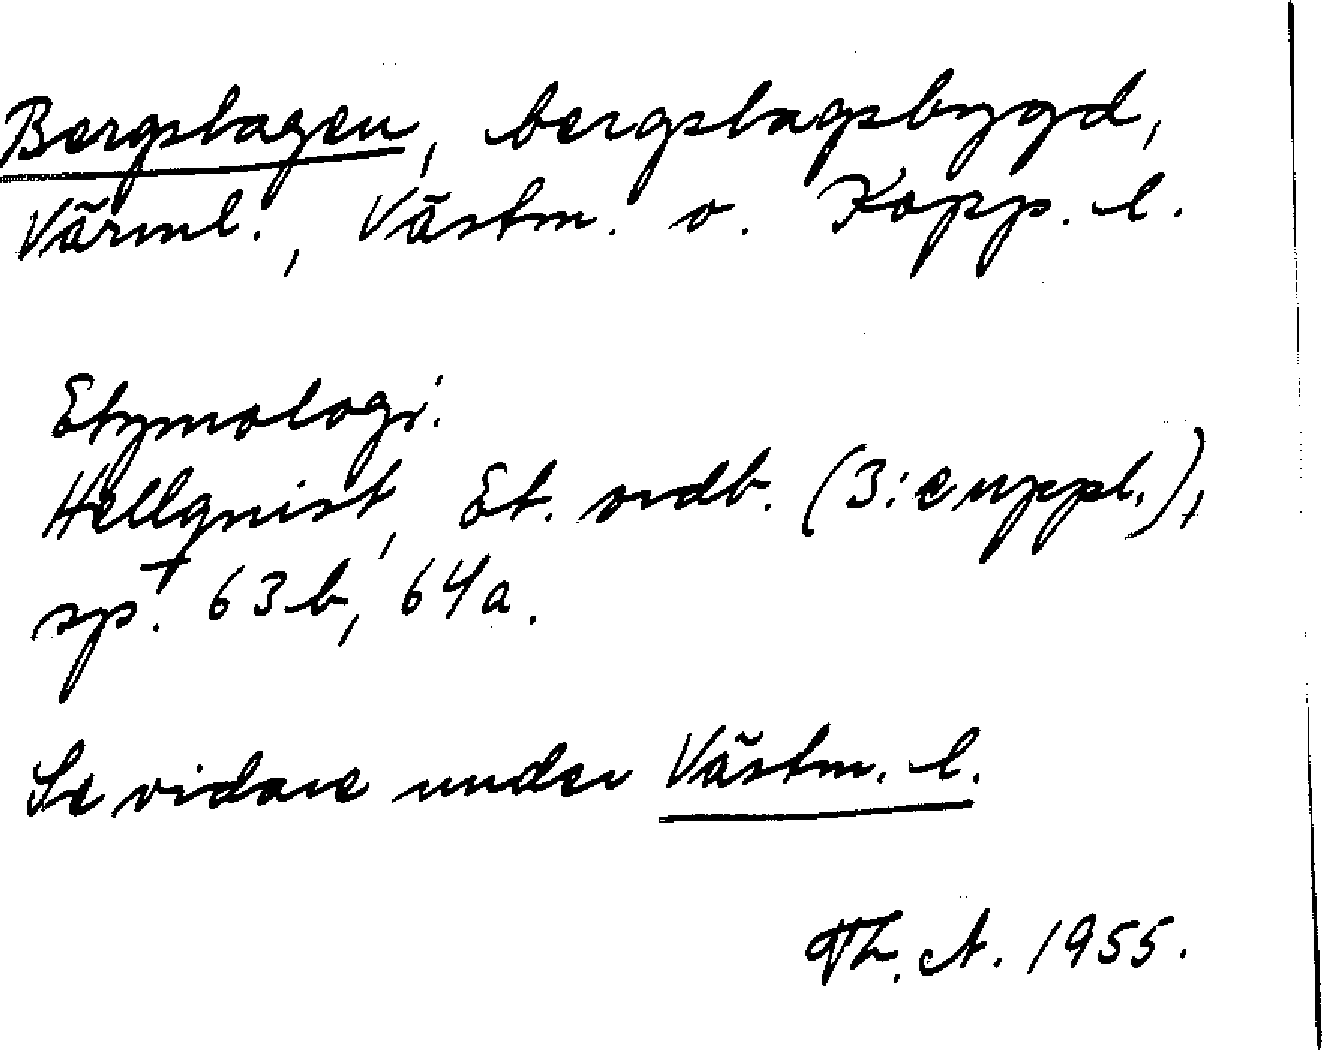 Bergslagen, bergslagsbygd,
Värml., Västm. o. Kopp. l.
Etymologi.
Hellquist, Et. ordb. (3:e uppl.),
sp. 63b, 64a.
Se vidare under Västm. l.
Th. A. 1955.